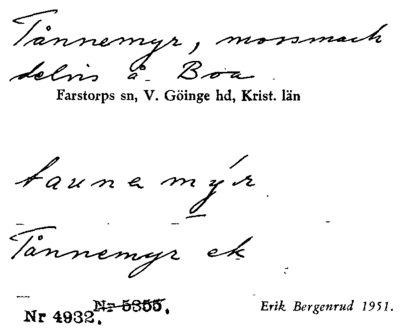 Tånnemyr, mossmark
delvis å Boa
Farstorps sn, V. Göinge hd, Krist. län
taunemýr
Tånnemyr ek
Nr 5355.
Nr 4932.
Erik Bergenrud 1951.